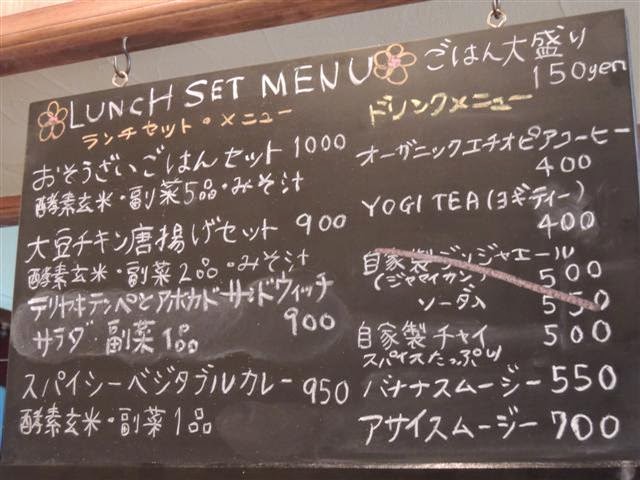 LUNCH SET MENU
ランチセット・メニュー
おそうざいごはんセット 1000
酵素玄米・副菜5品・みそ汁
大豆チキン唐揚げセット 900
酵素玄米・副菜2品・みそ汁
テリヤキテンペとアボカドサンドウィッチ
サラダ 副菜1品 900
スパイシーベジタブルカレー 950
酵素玄米・副菜1品
ごはん大盛り
150yen
ドリンクメニュー
オーガニックエチオピアコーヒー
400
YOGI TEA(ヨギティー)
400
自家製ジンジャエール
500
ソーダ入 550
自家製チャイ 500
スパイスたっぷり
バナナスムージー 550
アサイスムージー 700